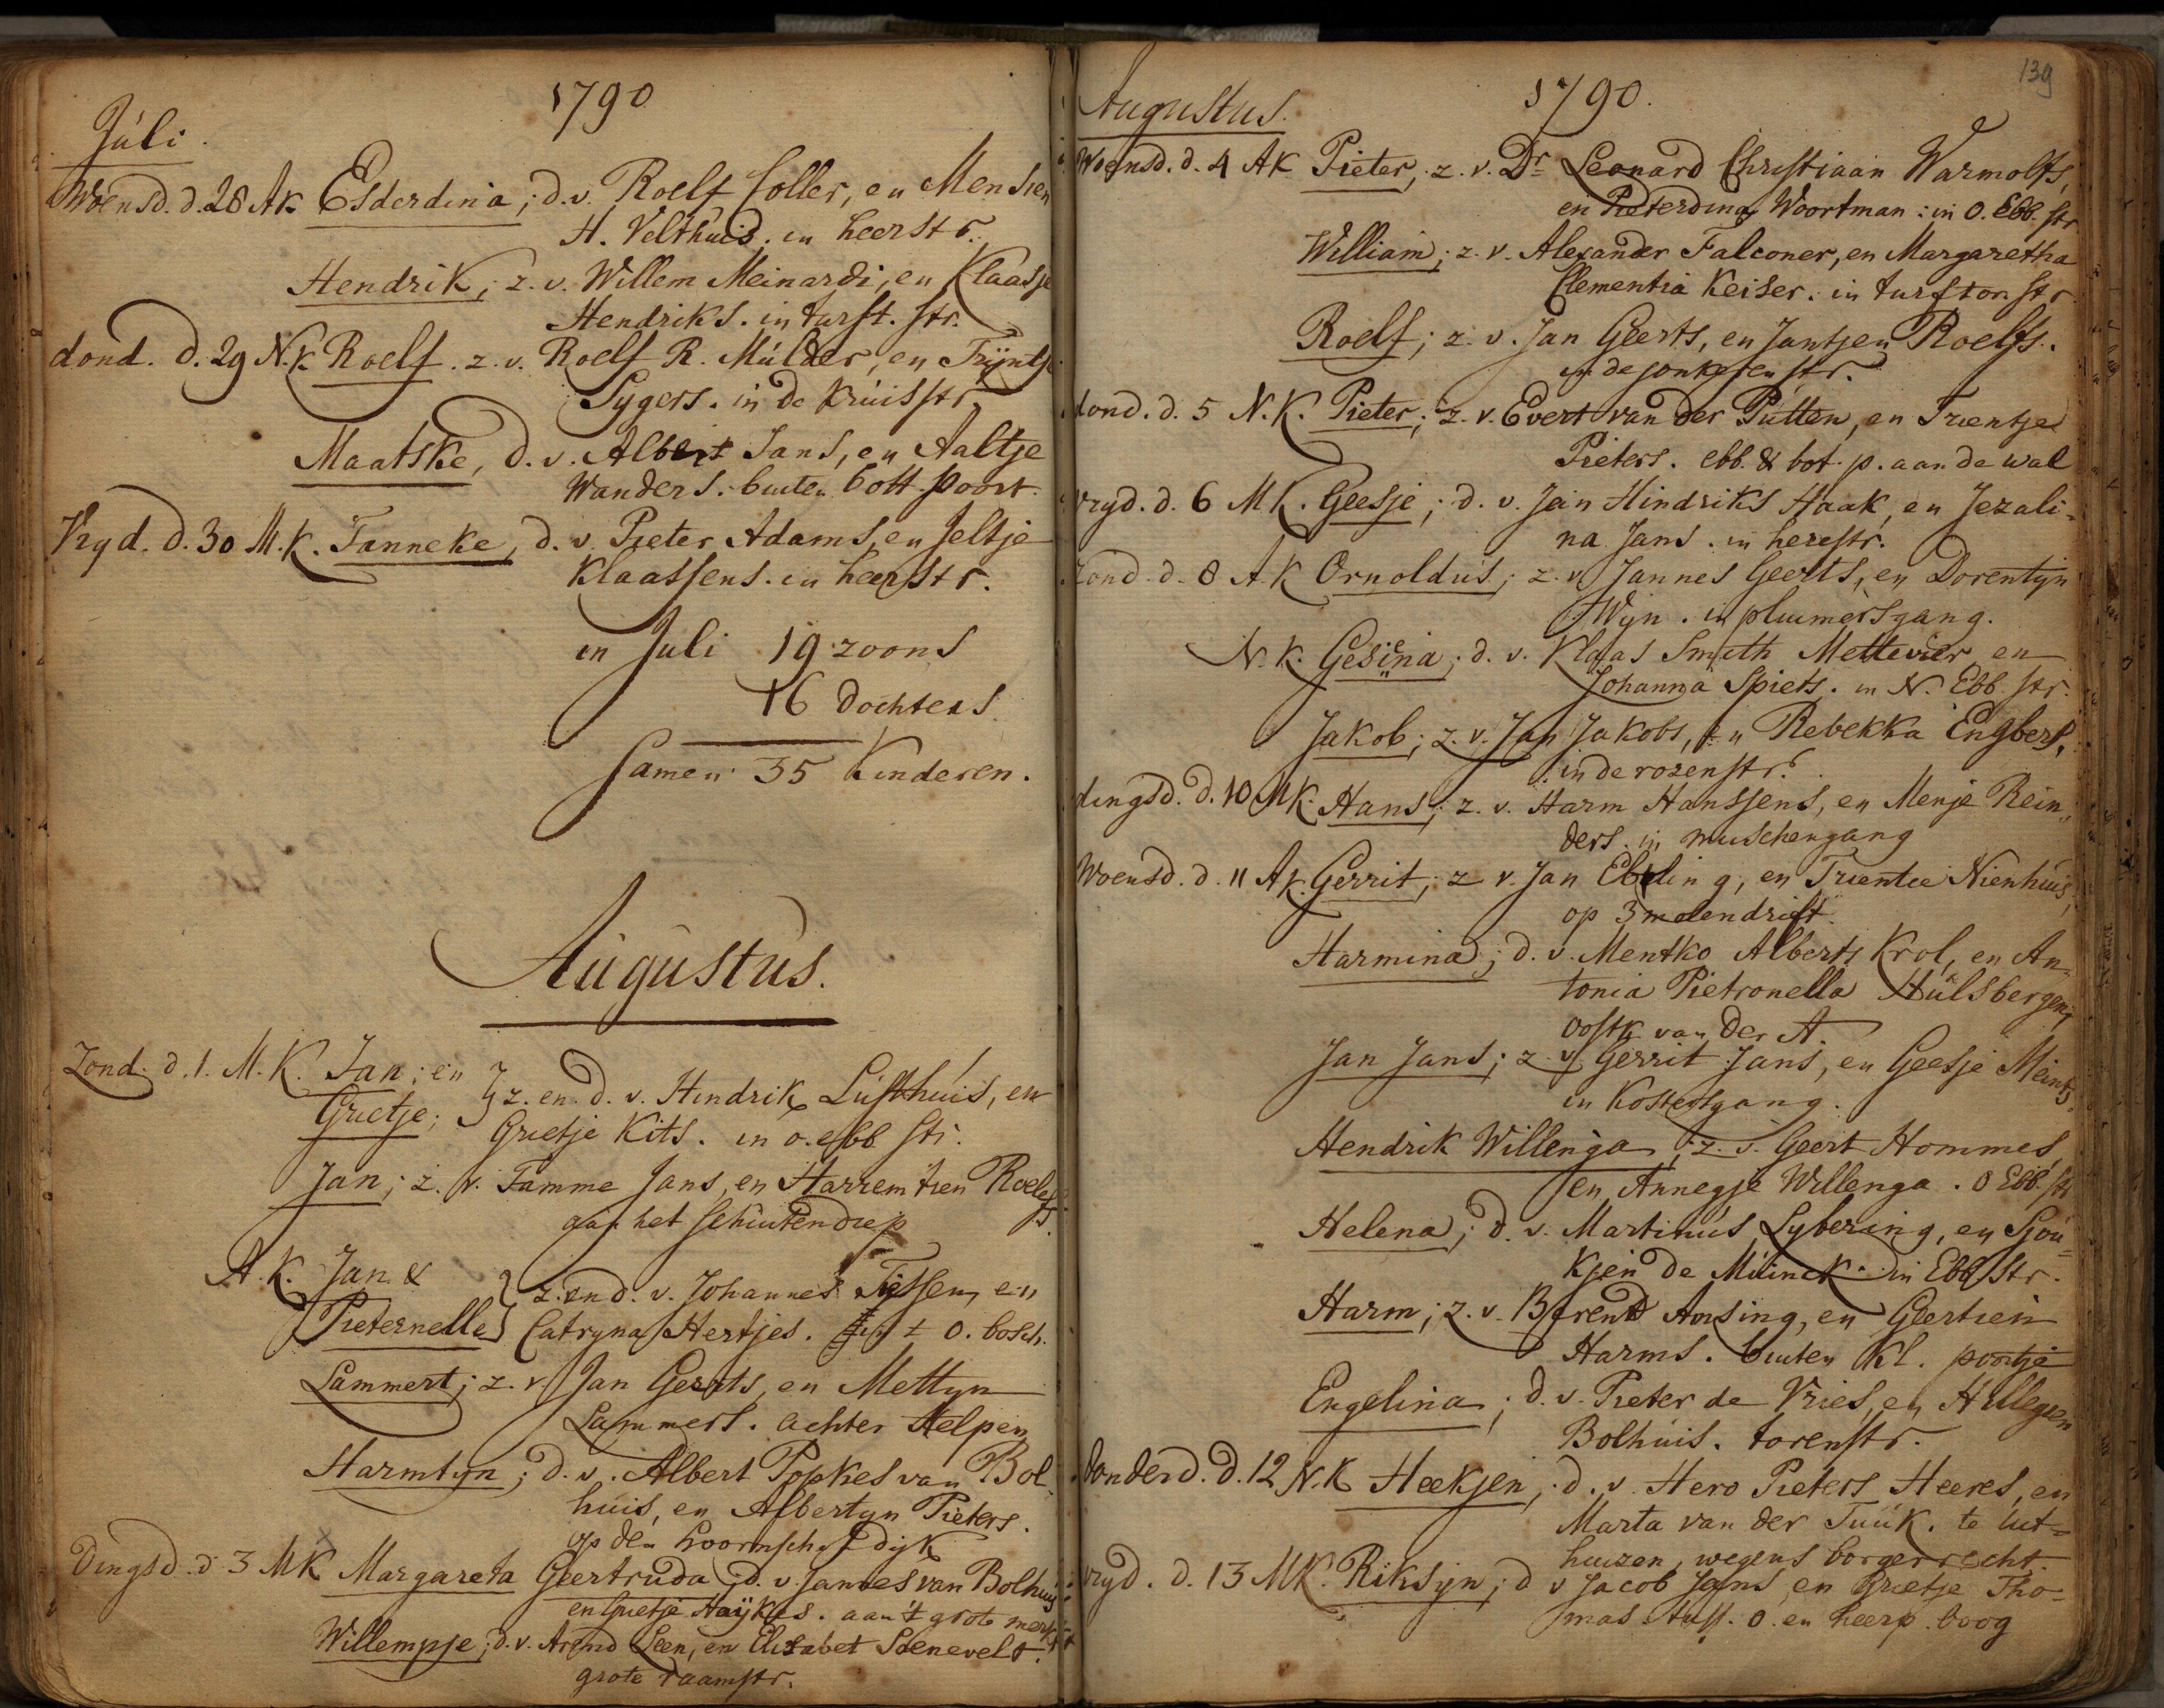 1790
Juli.
Woensd. d. 28 AK Esderdina; d. v. Roelf Coller, en Menssien
H. Velthuis. in heerstr.
Hendrik; z. v. Willem Meinardi, en Klaasje
Hendriks. in turft. str.
dond. d. 29 N.K. Roelf. z. v. Roelf R. Mulder, en Trijntje
Sygers. in de kruisstr.
Maatske, d. v. Albert Jans, en Aaltje
Wanders. buiten bott. poort.
Vryd. d. 30 M.K. Tanneke, d. v. Pieter Adams, en Jeltje
Klaassens. in heerstr.
in Juli 19 zoons
16 dochters
samen 35 Kinderen.
Augustus.
Zond. d. 1. M.K. Jan; en
Grietje; } z. en d. v. Hindrik Lusthuis, en
Grietje Kits. in o. ebb str.
Jan; z. v. Tamme Jans, en Harremtien Roelefs.
aan het schuitendiep
A.K. Jan &
Pieternelle } z. en d. v. Johannes Tijssen, en
Catryna Hertjes. ± o. bosch.
Lammert; z. v. Jan Geerts, en Mettyn
Lammers. achter Helpen
Harmtyn; d. v. Albert Popkes van Bol-
huis, en Albertyn Pieters.
op den hoornschen dijk
Dingsd. d 3 MK Margareta Geertruda; d. v. Jannes van Bolhuis
en Grietje Haijkes. aan 't grote merkt
Willempje; d. v. Arend Leen, en Elisabet Soenevelt.
grote raamstr.
139
1790.
Augustus.
Woensd. d. 4 AK Pieter; z. v. Dr Leonard Christiaan Warmolts,
en Pieterdina Woortman: in O. Ebb. str
William; z. v. Alexander Falconer, en Margaretha
Clementia Keiser. in turftorn str
Roelf; z. v. Jan Geerts, en Jantjen Roelfs.
in de jonkeren str.
dond. d. 5 N.K. Pieter; z. v. Evert van der Putten, en Trientje
Pieters. ebb. & bot. p. aan de wal
vryd. d. 6 MK. Geesje; d. v. Jan Hindriks Haak, en Jezali=
na Jans. in herestr.
Zond. d. 8 A.K Ornoldus; z. v. Jannes Geerts, en Dorentyn
Wyn. in pluimersgang.
N.K. Gesina; d. v. Klaas Smith Mettevier, en
Johanna Spiets. in N. Ebb. str.
Jakob; z. v. Jan Jakobs, en Rebekka Engbers,
in de rozenstr.
dingsd. d. 10 MK. Hans; z. v. Harm Hanssens, en Menje Rein=
ders. in muschengang
Woensd. d. 11 AK. Gerrit; z v. Jan Ebeling, en Trientie Nienhuis,
op 3 molendrift.
Harmina; d. v. Mentko Alberts Krol, en An=
tonia Pietronella Hulsbergen,
oostk van der A.
Jan Jans; z. v. Gerrit Jans, en Geesje Meints.
in Kostersgang.
Hendrik Willenga; z. v. Geert Hommes,
en Annegje Willenga. O Ebb. str
Helena; d. v. Martinus Lybering, en Sjou=
kjen de Muinck. in Ebb. str.
Harm; z. v. Berend Ansing, en Geertien
Harms. buiten Kl. poortje
Engelina; d. v. Pieter de Vries, en Hillegien
Bolhuis. torenstr.
donderd. d. 12 N.K Heekjen; d. v. Hero Pieters Heeres, en
Marta van der Tuuk. te uit=
huizen, wegens borgerrecht.
vryd. d. 13 MK. Riksyn; d v Jacob Jans, en Grietje Tho=
mas. tuss. o. en heerp. boog